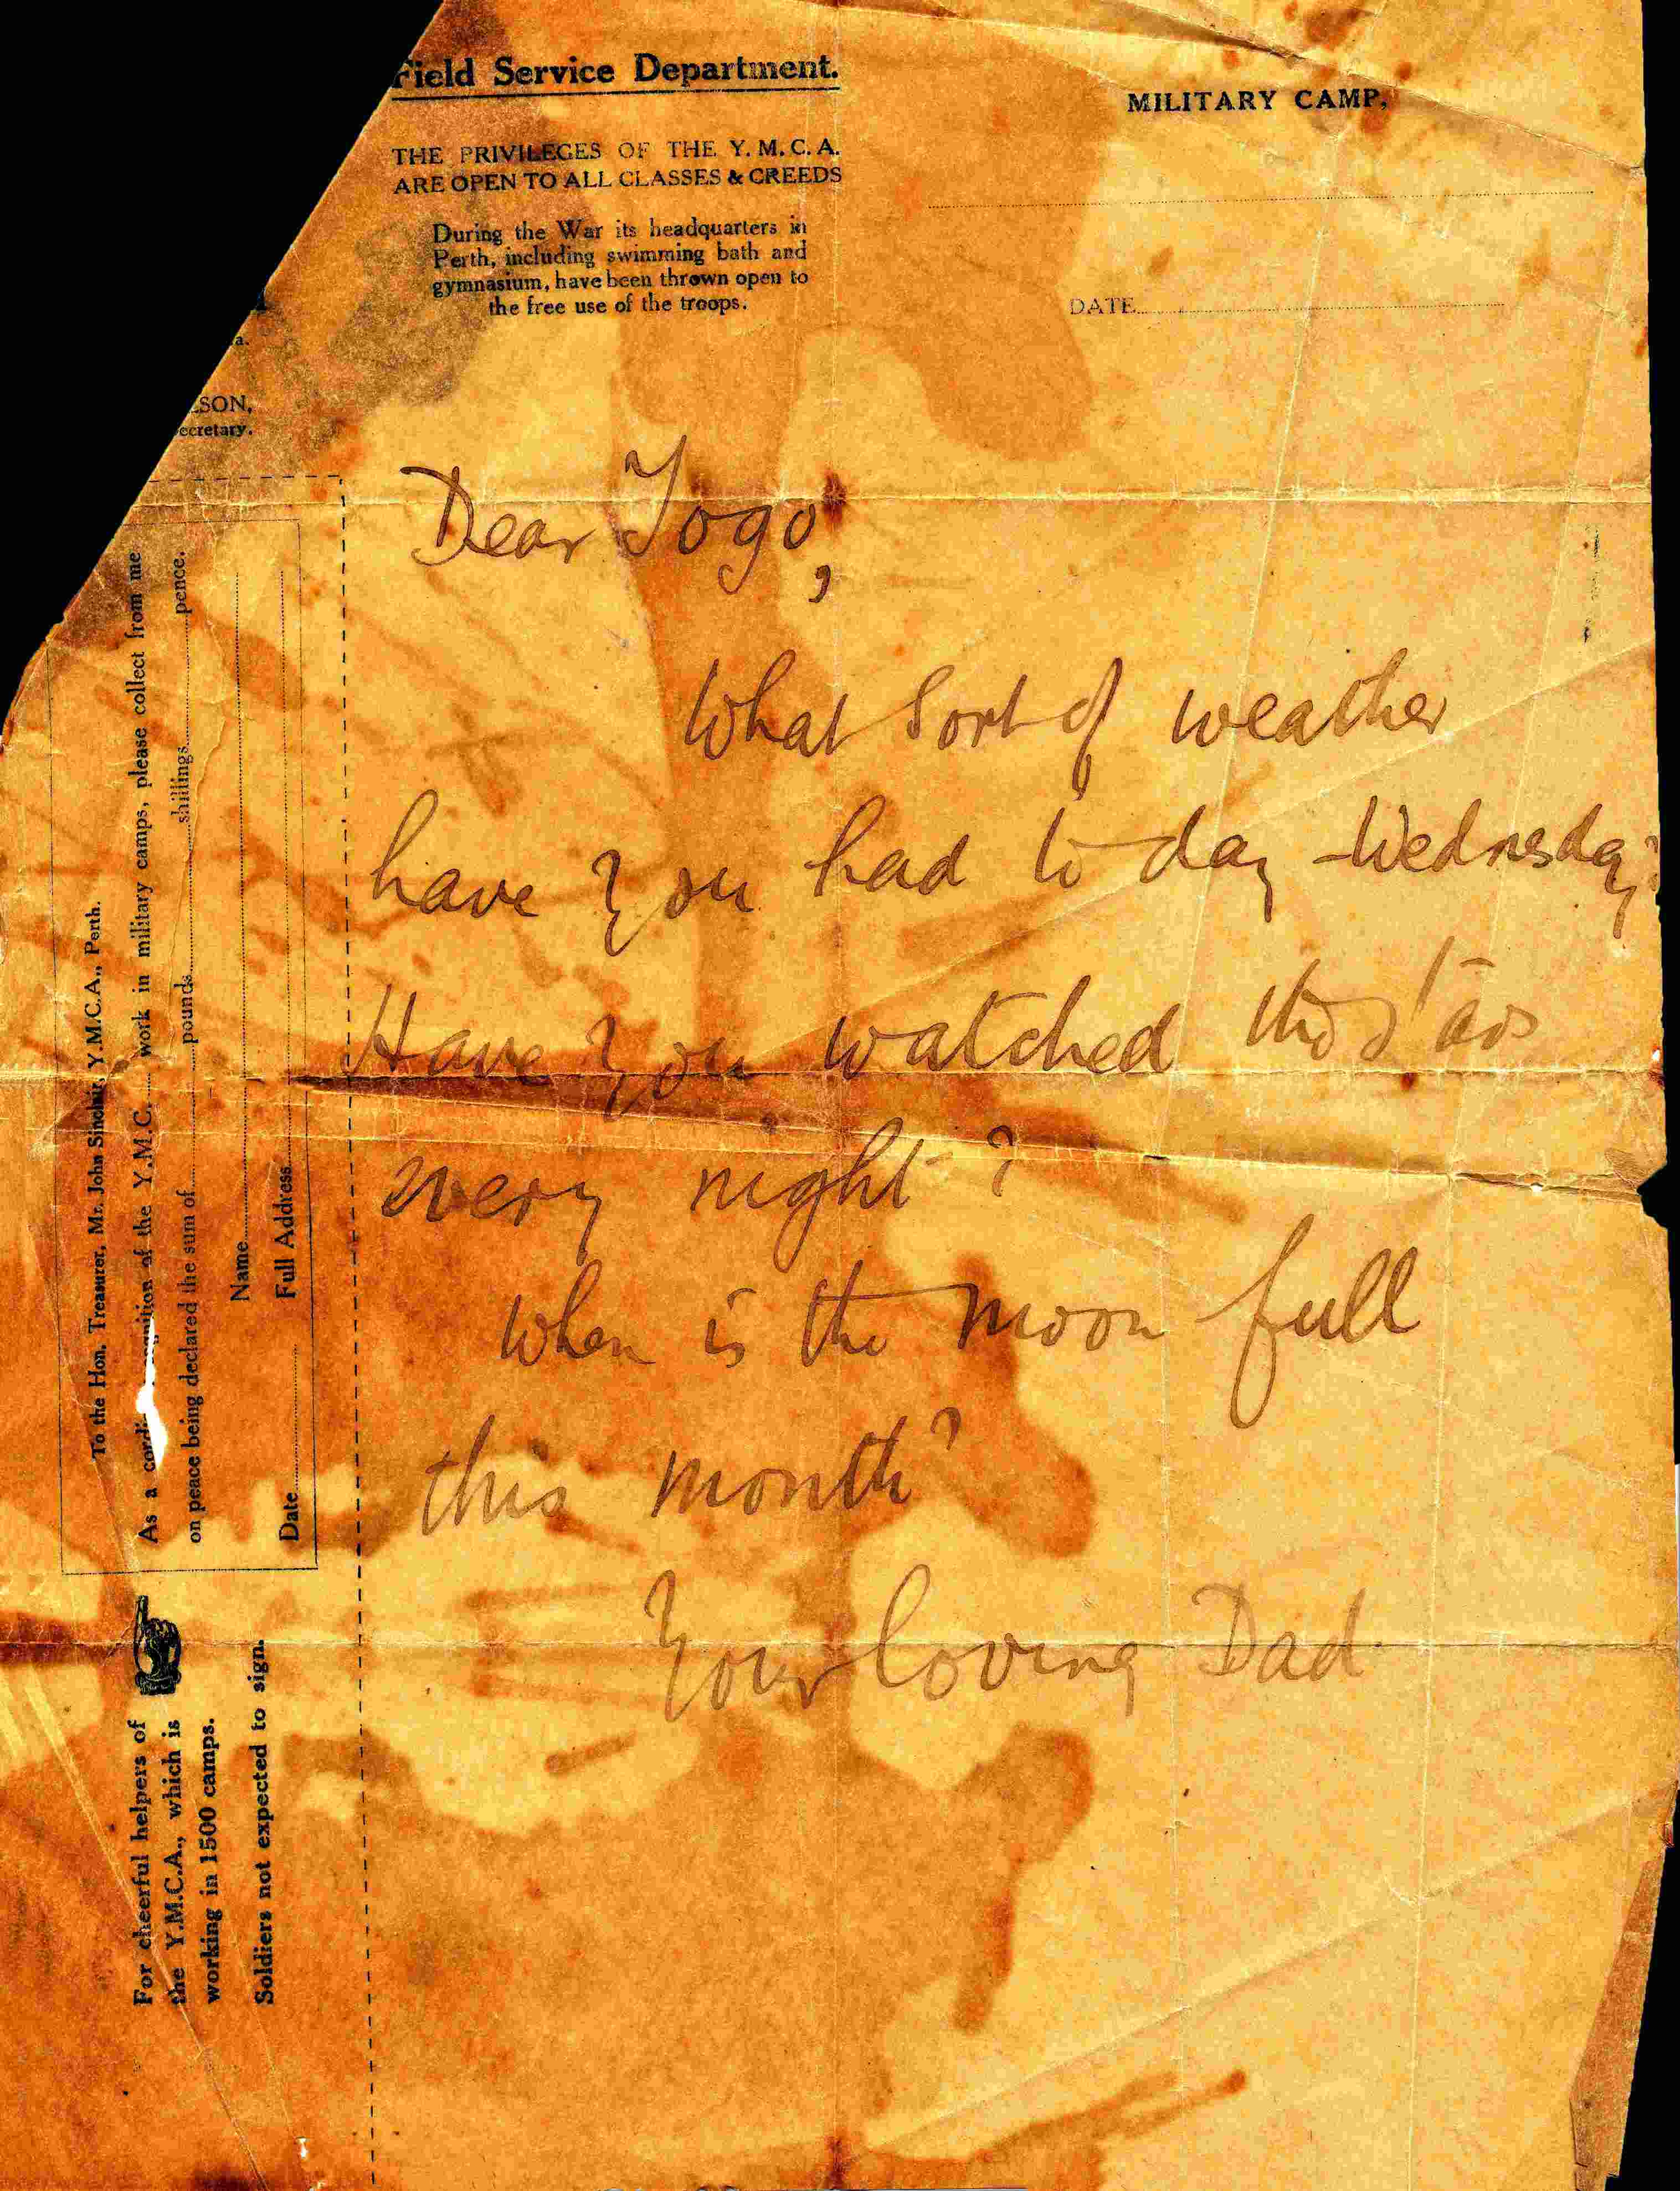 Field Service Department.
THE PRIVILEGES OF THE Y. M. C. A.
ARE OPEN TO ALL CLASSES & CREEDS
During the War its headquarters in
Perth, including swimming bath and
gymnasium, have been thrown open to
the free use of the troops.
MILITARY CAMP,
DATE
a.
SON,
ecretary.
Dear Togo,
What sort of weather
have you had to day - Wednesday?
Have you watched the stars
every night?
When is the moon full
this month?
Your loving Dad
To the Hon. Treasurer, Mr. John Sinclair, Y.M.C.A., Perth.
As a work in military camps, please collect from me
on peace being declared the sum of pounds shillings pence.
Name
Date Full Address
For cheerful helpers of
the Y.M.C.A., which is
working in 1500 camps.
Soldiers not expected to sign.